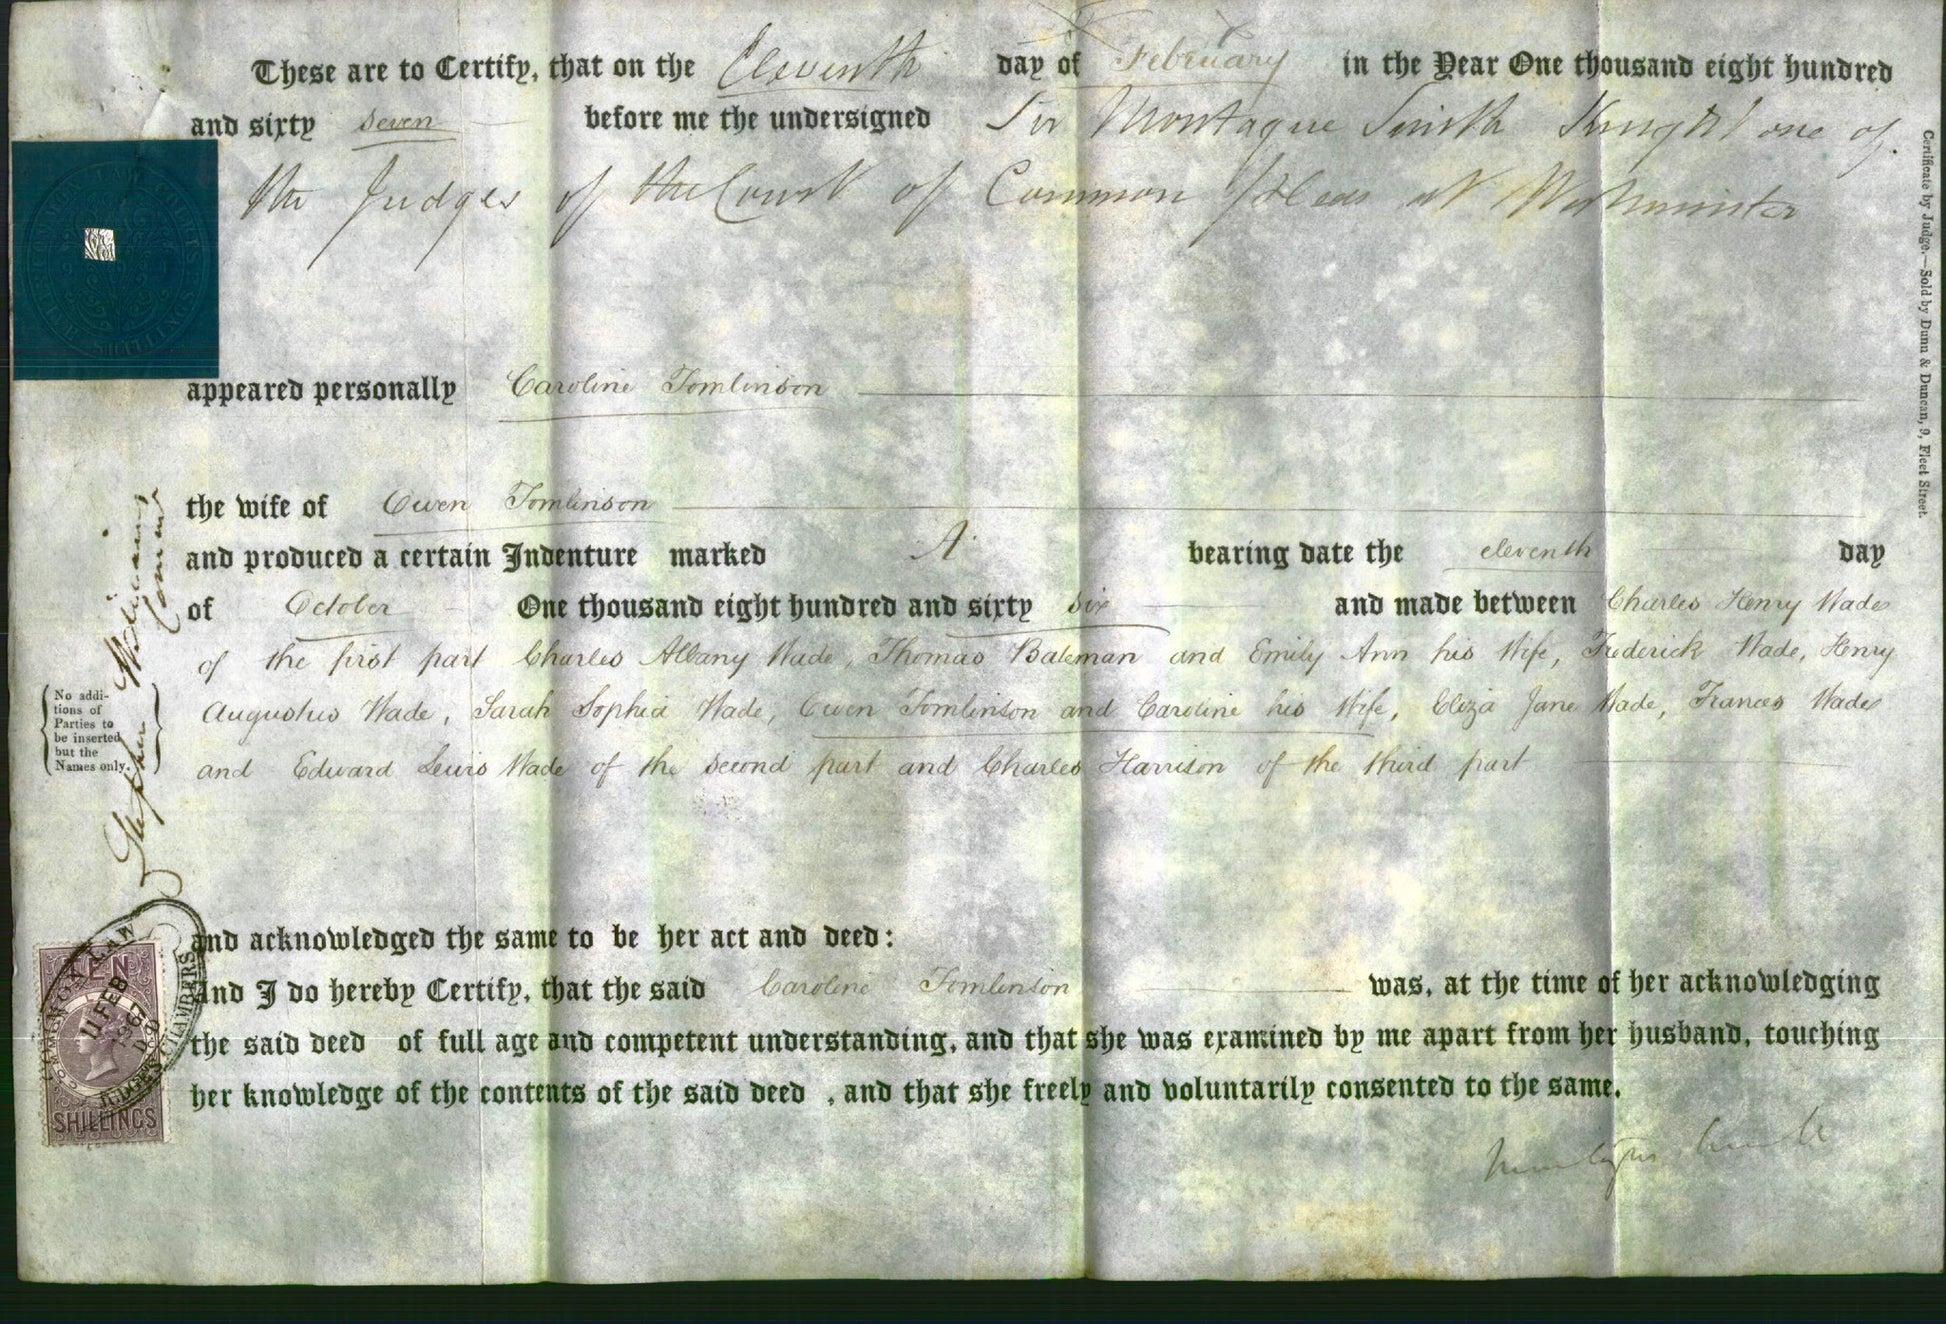 These are to Certify, that on the Eleventh day of February in the Year One thousand eight hundred
and sixty seven before me the undersigned Sir Montague Smith Knight one of
the Judges of the Court of Common Pleas at Westminster
COMMON LAW COURTS
FIVE SHILLINGS
appeared personally Caroline Tomlinson
the wife of Owen Tomlinson
and produced a certain Indenture marked A. bearing date the eleventh day
of October One thousand eight hundred and sixty six and made between Charles Henry Wade
of the first part Charles Albany Wade, Thomas Bateman and Emily Ann his Wife, Frederick Wade, Henry
Augustus Wade, Sarah Sophia Wade, Owen Tomlinson and Caroline his Wife, Eliza Jane Wade, Frances Wade
and Edward Lewis Wade of the second part and Charles Harrison of the third part
No addi-
tions of
Parties to
be inserted
but the
Names only.
Stephen Williams
Commr
and acknowledged the same to be her act and deed:
And I do hereby Certify, that the said Caroline Tomlinson was, at the time of her acknowledging
the said deed of full age and competent understanding, and that she was examined by me apart from her husband, touching
her knowledge of the contents of the said deed , and that she freely and voluntarily consented to the same.
Montague Smith
TEN
SHILLINGS
COMMON LAW
11 FEB
1867
JUDGES CHAMBERS
Certificate by Judge.—Sold by Dunn & Duncan, 9, Fleet Street.